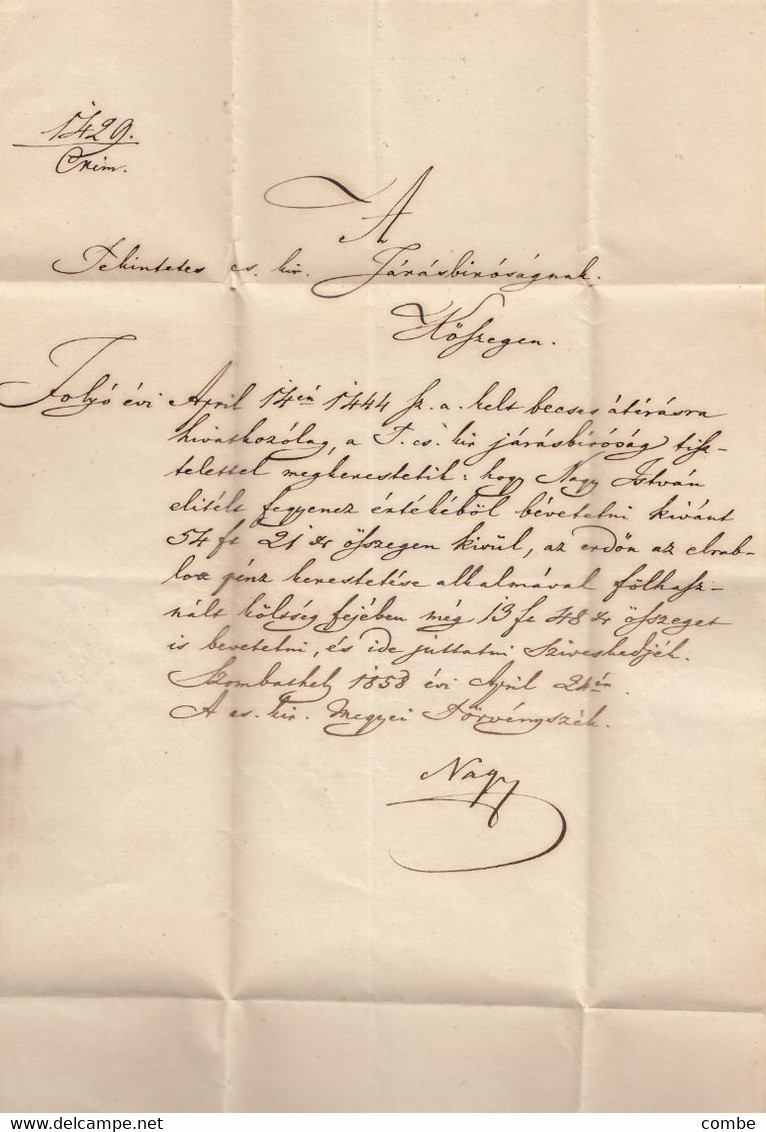 1429.
Crim.
A
Tekintetes cs. kir. Járásbiróságnak.
Kőszegen.
Folyó évi April 14én 1444 sz. a. kelt becses átirásra
hivatkozólag, a T. cs. kir járásbiróság tisz-
telettel megkerestetik: hogy Nagy István
elitélt fegyencz értékéböl bévetetni kivánt
54 ft 21 xr összegen kivül, az erdőn az elrab-
lott pénz kerestetése alkalmával fölhasz-
nált költség fejében még 13 ft 48 xr összeget
is bevetetni, és ide juttatni sziveskedjék.
Szombathely 1858 évi April 24én.
A cs. kir. Megyei Törvényszék.
Nagy
Delcampe.net
combe